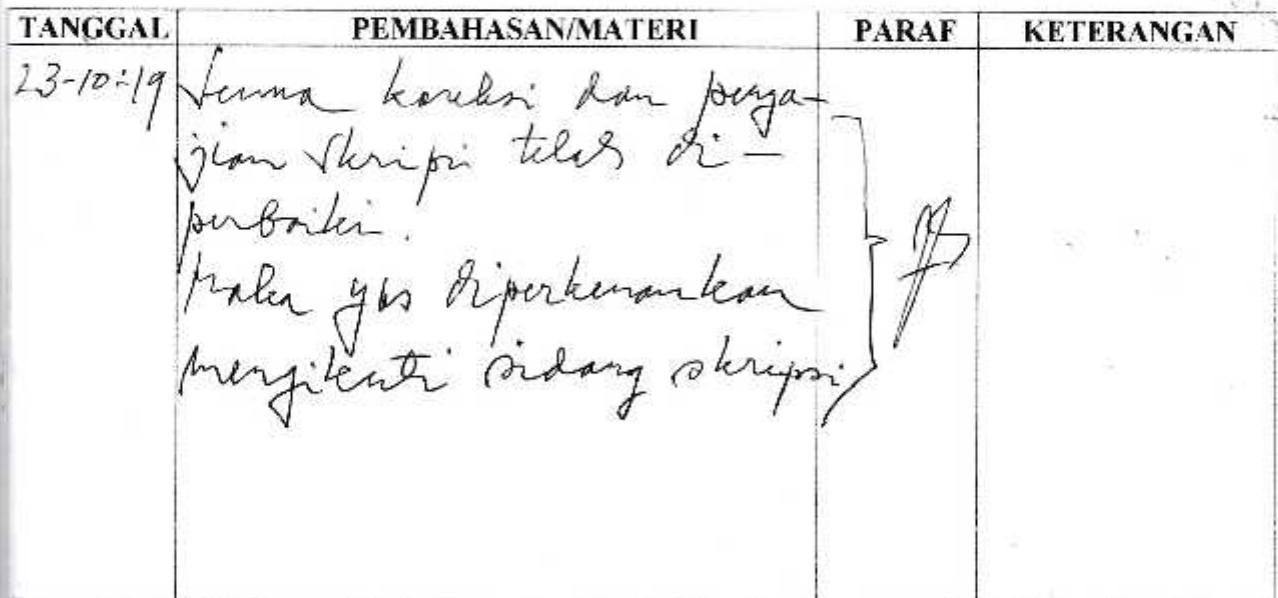 TANGGAL PEMBAHASAN/MATERI PARAF KETERANGAN
23-10-19 Semua koreksi dan penga-
jian skripsi telah di-
perbaiki.
Maka ybs diperkenankan
mengikuti sidang skripsi